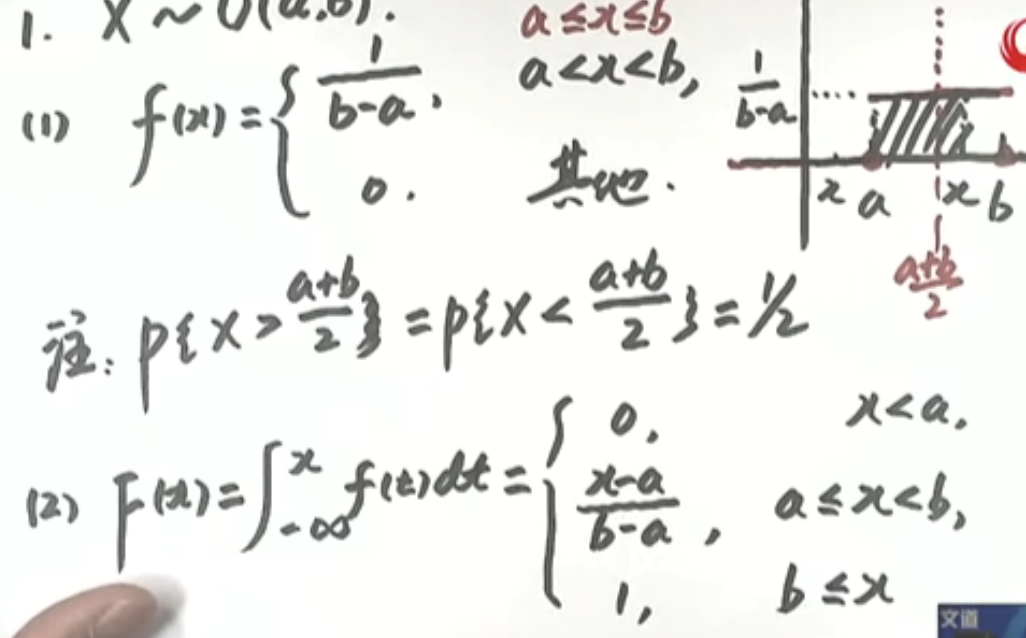 1. X ~ U(a,b).
a≤x≤b
(1) f(x)={ 1/(b-a), a<x<b,
0. 其他.
1/(b-a)
x a x b
(a+b)/2
注: P{X>(a+b)/2}=P{X<(a+b)/2}=1/2
(2) F(x)=∫_{-∞}^{x} f(t)dt={ 0, x<a,
(x-a)/(b-a), a≤x<b,
1, b≤x
文道